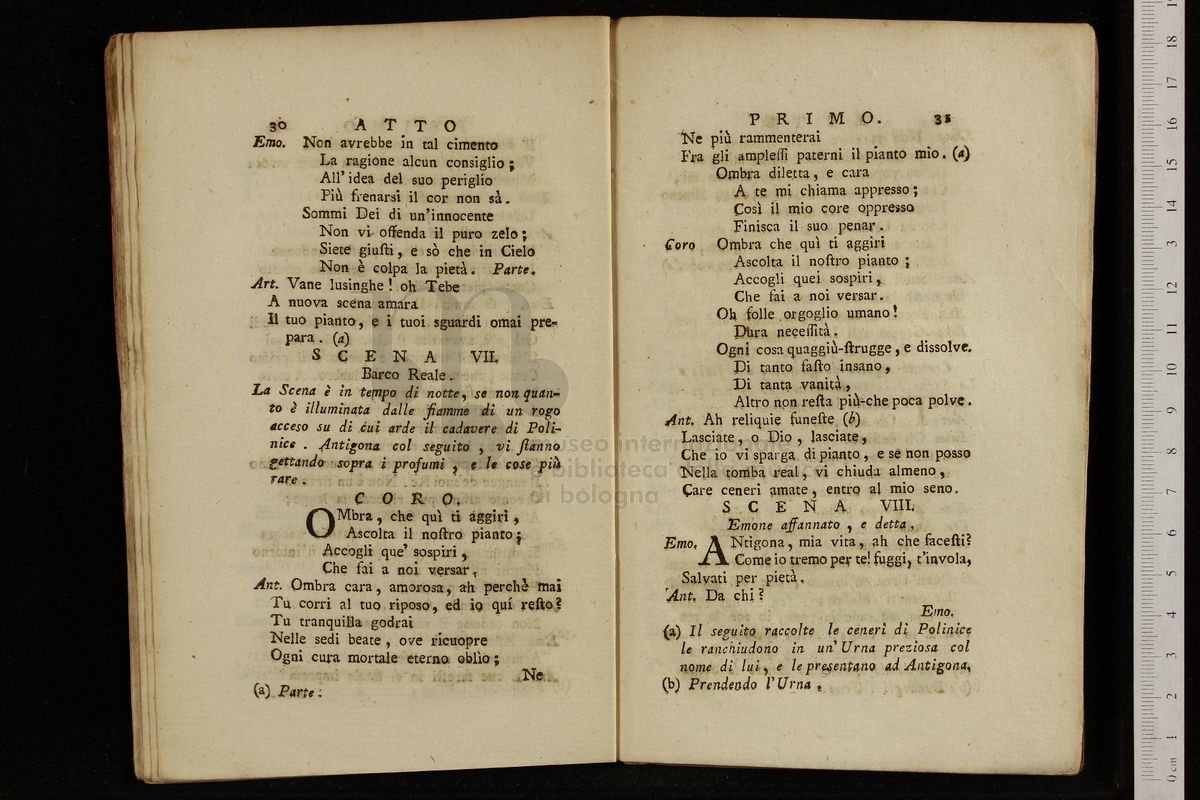 30 ATTO
Emo. Non avrebbe in tal cimento
La ragione alcun consiglio;
All' idea del suo periglio
Più frenarsi il cor non sà.
Sommi Dei di un'innocente
Non vi offenda il puro zelo;
Siete giuſti, e sò che in Cielo
Non è colpa la pietà. Parte.
Art. Vane lusinghe! oh Tebe
A nuova scena amara
Il tuo pianto, e i tuoi sguardi omai pre-
para. (a)
SCENA VII.
Barco Reale.
La Scena è in tempo di notte, se non quan-
to è illuminata dalle fiamme di un rogo
acceso su di cui arde il cadavere di Poli-
nice. Antigona col seguito, vi ſtanno
gettando sopra i profumi, e le cose più
rare.
CORO.
OMbra, che quì ti aggiri,
Ascolta il noſtro pianto;
Accogli que' sospiri,
Che fai a noi versar.
Ant. Ombra cara, amorosa, ah perchè mai
Tu corri al tuo riposo, ed io quí reſto?
Tu tranquilla godrai
Nelle sedi beate, ove ricuopre
Ogni cura mortale eterno oblìo;
Ne
(a) Parte.
PRIMO. 31
Ne più rammenterai
Fra gli ampleſſi paterni il pianto mio. (a)
Ombra diletta, e cara
A te mi chiama appresso;
Così il mio core oppresso
Finisca il suo penar.
Coro Ombra che quì ti aggiri
Ascolta il noſtro pianto;
Accogli quei sospiri,
Che fai a noi versar.
Oh folle orgoglio umano!
Dura neceſſità.
Ogni cosa quaggiù ſtrugge, e dissolve.
Di tanto faſto insano,
Di tanta vanità,
Altro non reſta più che poca polve.
Ant. Ah reliquie funeſte (b)
Lasciate, o Dio, lasciate,
Che io vi sparga di pianto, e se non posso
Nella tomba real, vi chiuda almeno,
Care ceneri amate, entro al mio seno.
SCENA VIII.
Emone affannato, e detta.
Emo. ANtigona, mia vita, ah che faceſti?
Come io tremo per te! fuggi, t'invola,
Salvati per pietà.
Ant. Da chi?
Emo.
(a) Il seguito raccolte le ceneri di Polinice
le ranchiudono in un' Urna preziosa col
nome di lui, e le presentano ad Antigona,
(b) Prendendo l'Urna.
museo internazionale
e biblioteca della musica
di bologna
0 cm 1 2 3 4 5 6 7 8 9 10 11 12 13 14 15 16 17 18